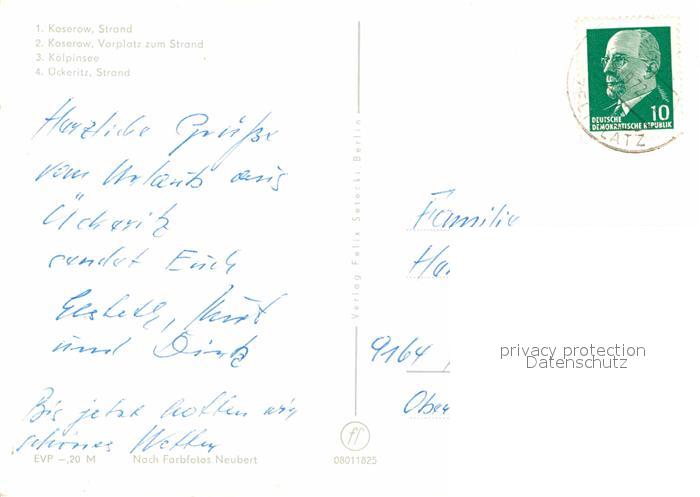 1. Koserow, Strand
2. Koserow, Vorplatz zum Strand
3. Kölpinsee
4. Ückeritz, Strand
Herzliche Grüße
vom Urlaub aus
Ückeritz
sendet Euch
Elsbeth, Kurt
und
Bis jetzt hatten wir
schönes Wetter
EVP –,20 M Nach Farbfotos Neubert
Verlag Felix Setecki Berlin
08011825
DEUTSCHE
DEMOKRATISCHE REPUBLIK
10
ATZ
Familie
Ha
9164
Ober
privacy protection
Datenschutz